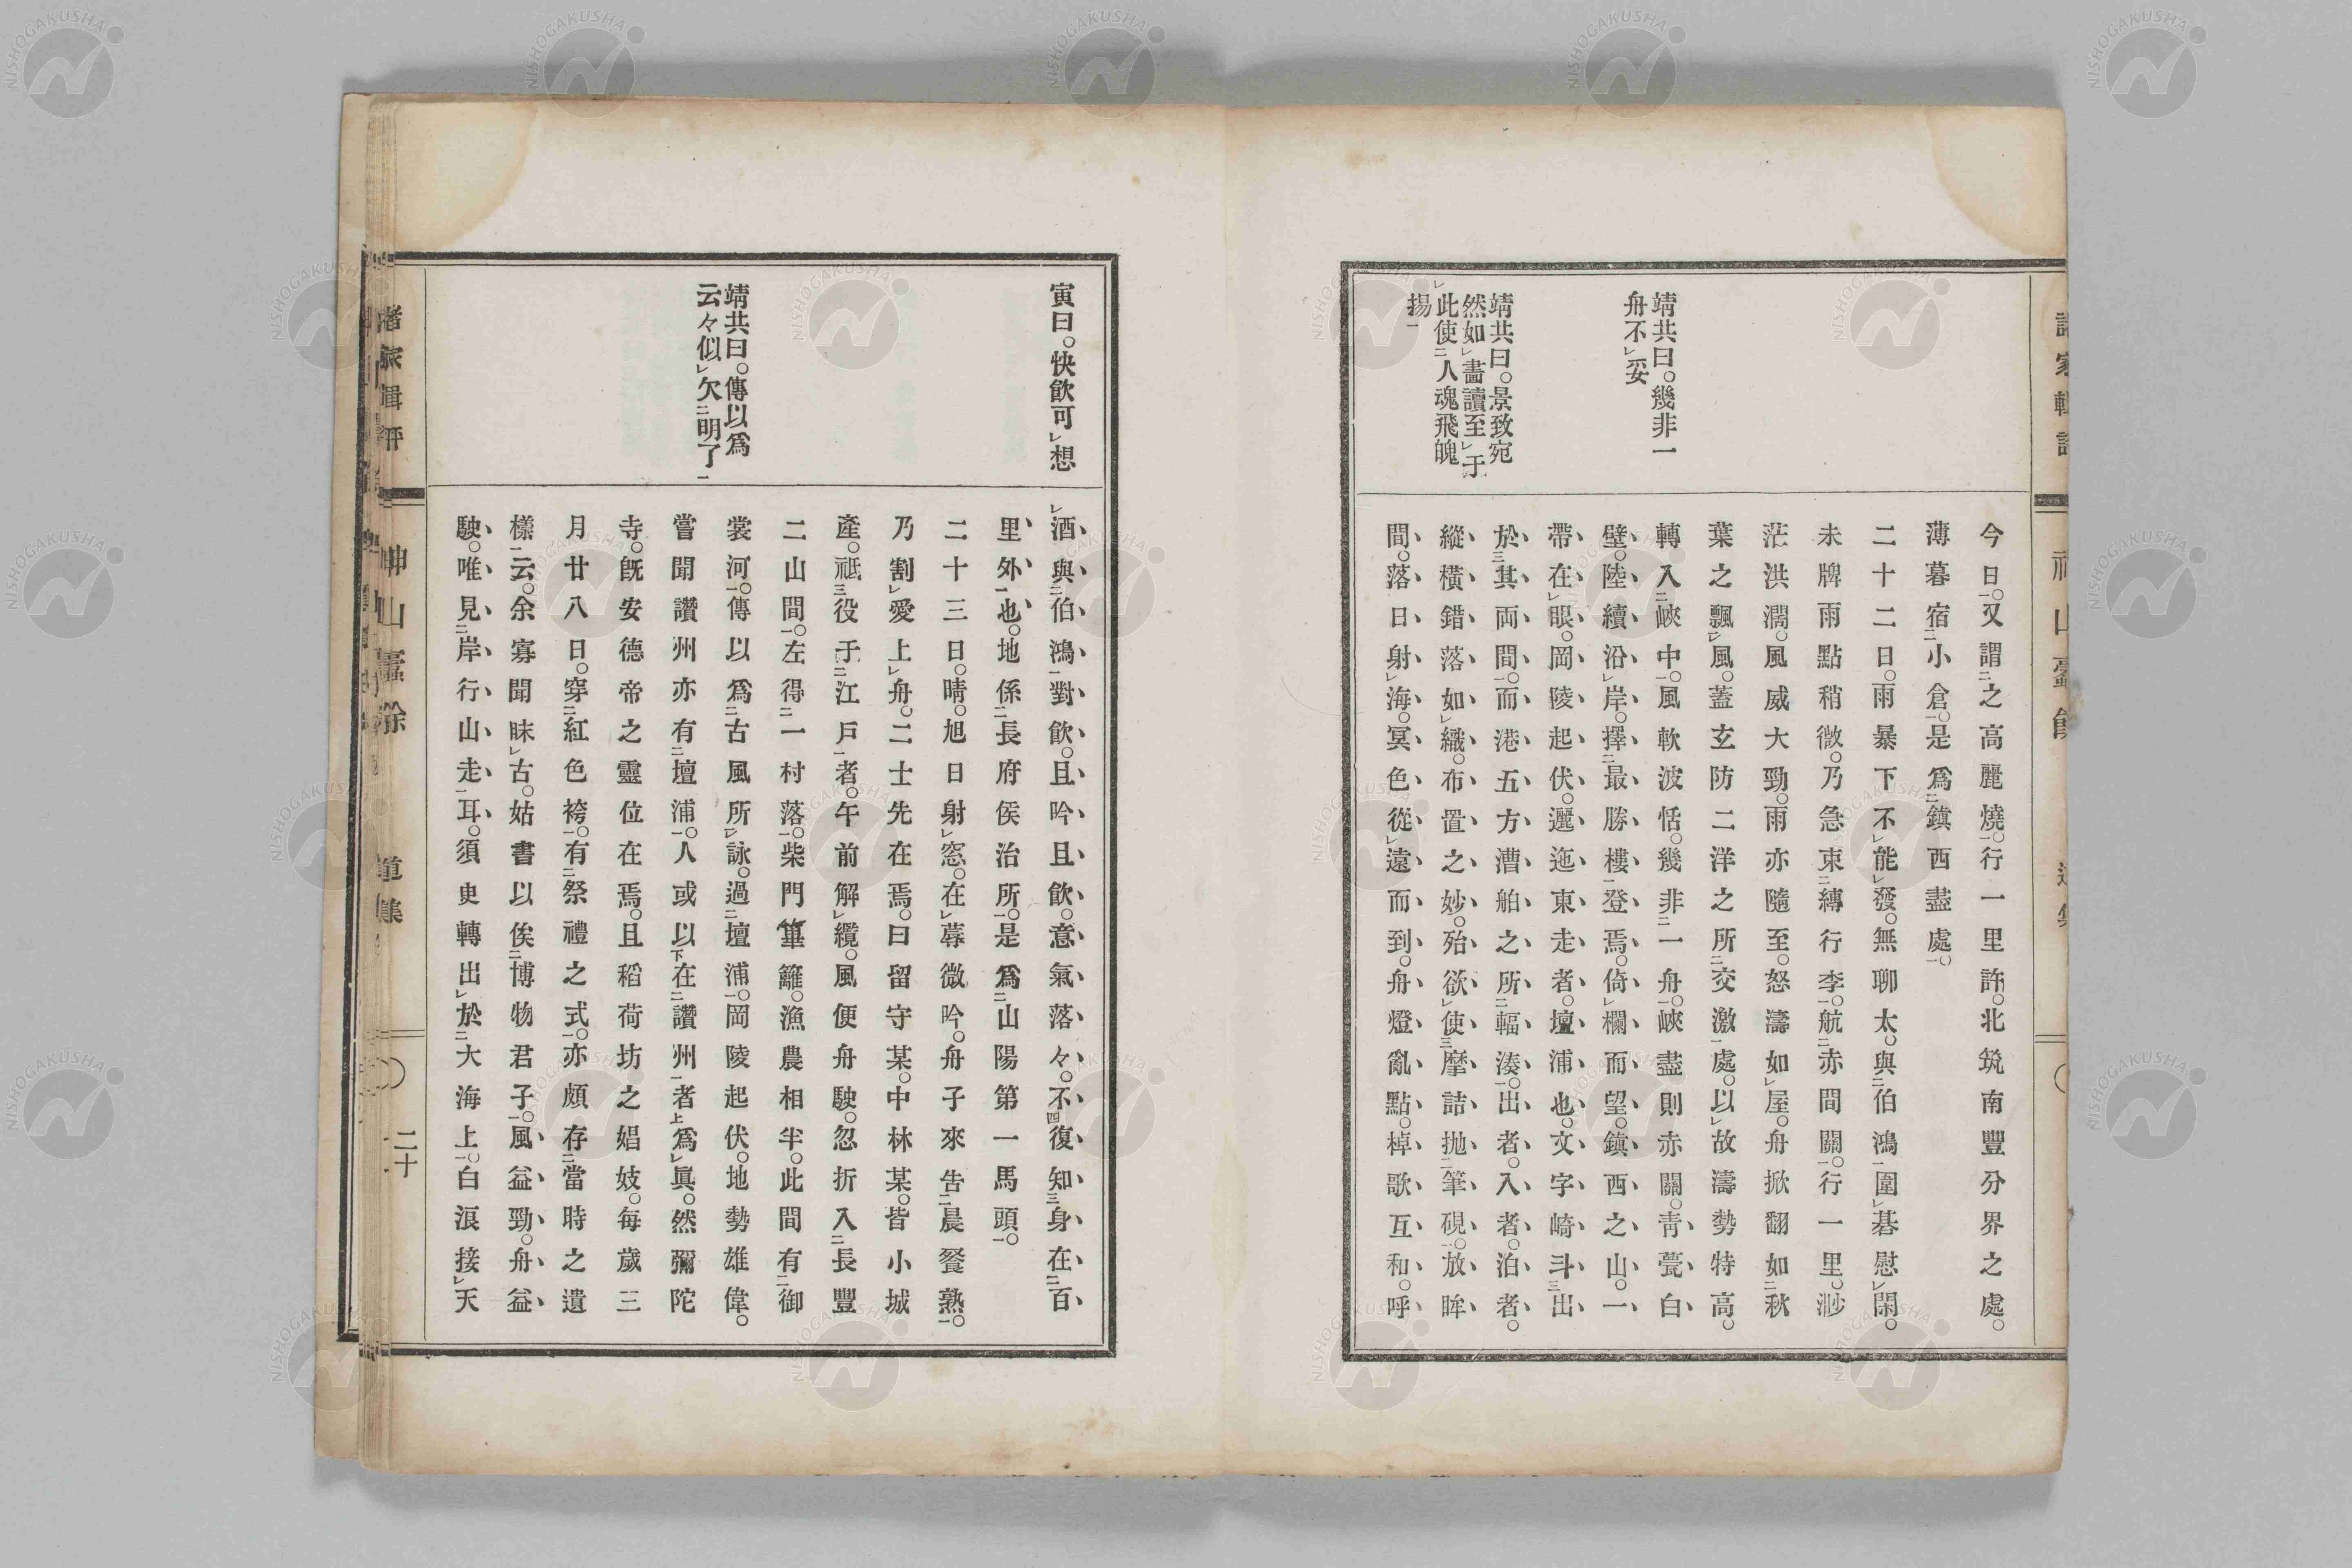 靖共曰。幾非一
舟不レ妥
靖共曰。景致宛
然如レ畫讀至レ于
レ此使二人魂飛魄
揚一
今日一。又謂二之高麗燒一。行一里許。北筑南豐分界之處。
薄暮宿二小倉一。是爲二鎭西盡處一。
二十二日。雨暴下不レ能レ發。無聊太。與二伯鴻一圍レ碁慰レ閑。
未牌雨點稍微。乃急束二縛行李一。航二赤間關一。行一里。渺
茫洪濶。風威大勁。雨亦隨至。怒濤如レ屋。舟掀翻如二秋
葉之飄レ風。蓋玄防二洋之所二交激一處。以レ故濤勢特高。
轉入二峽中一。風軟波恬。幾非二一舟一。峽盡則赤關。靑甍白
壁。陸續沿レ岸。擇二最勝樓一登焉。倚レ欄而望。鎭西之山。一
帶在レ眼。岡陵起伏。邐迤東走者。壇浦也。文字崎斗三出
於三其両間一。而港五方漕舶之所二輻湊一。出者。入者。泊者。
縱橫錯落如レ織。布置之妙。殆欲レ使三摩詰抛二筆硯一。放眸
間。落日射レ海。冥色從レ遠而到。舟燈亂點。棹歌互和。呼
寅曰。快飮可レ想
靖共曰。傳以爲
云々似レ欠二明了一
レ酒與二伯鴻一對飮。且吟且飮。意氣落々。不四復知三身在二百
里外一也。地係二長府侯治所一。是爲二山陽第一馬頭一。
二十三日。晴。旭日射レ窓。在レ蓐微吟。舟子來告二晨餐熟一。
乃割レ愛上レ舟。二士先在焉。曰留守某。中林某。皆小城
產。祗三役于二江戸一者。午前解レ纜。風便舟駛。忽折入二長豐
二山間一。左得二一村落一。柴門篳籬。漁農相半。此間有二御
裳河一。傳以爲二古風所レ詠。過二壇浦一。岡陵起伏。地勢雄偉。
嘗聞讚州亦有二壇浦一。人或以下在二讚州一者上爲レ眞。然彌陀
寺。既安德帝之靈位在焉。且稻荷坊之娼妓。每歲三
月廿八日。穿二紅色袴一。有二祭禮之式一。亦頗存二當時之遺
樣一云。余寡聞昧レ古。姑書以俟二博物君子一。風益勁。舟益
駛。唯見二岸行山走一耳。須臾轉出レ於二大海上一。白浪接レ天
二十